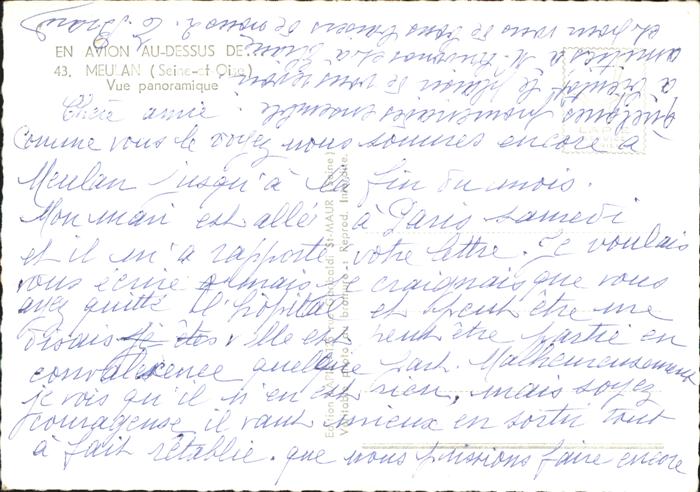 EN AVION AU-DESSUS DE...
43. MEULAN (Seine-et-Oise)
Vue panoramique
Chère amie.
Comme vous le voyez nous sommes encore à
Meulan jusqu'à la fin du mois.
Mon mari est allé à Paris samedi
et il m'a rapporté votre lettre. Je voulais
vous écrire mais je craignais que vous
ayez quitté l'hôpital et peut être me
disais elle est peut être partie en
convalescence quelque part. Malheureusement
je vois qu'il n'en est rien, mais soyez
courageuse il vaut mieux en sortir tout
à fait rétablie. que nous puissions faire encore
quelques promenades ensemble.
à bientôt le plaisir de vous revoir.
amitiés à M.
et pour vous de bons baisers de
St-MAUR (Seine)
Reprod. Interdite.